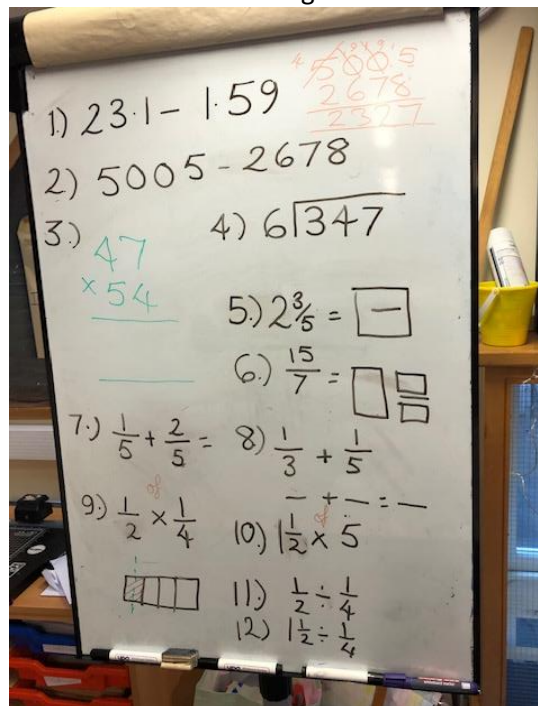 1.) 23.1 - 1.59
5005
2678
2327
2) 5005 - 2678
3.) 47
× 54
4) 6)347
5.) 2 3/5 = —
6.) 15/7 =
7.) 1/5 + 2/5 =
8) 1/3 + 1/5
— + — = —
9.) 1/2 × 1/4
of
10.) 1 1/2 × 5
of
11.) 1/2 ÷ 1/4
12.) 1 1/2 ÷ 1/4